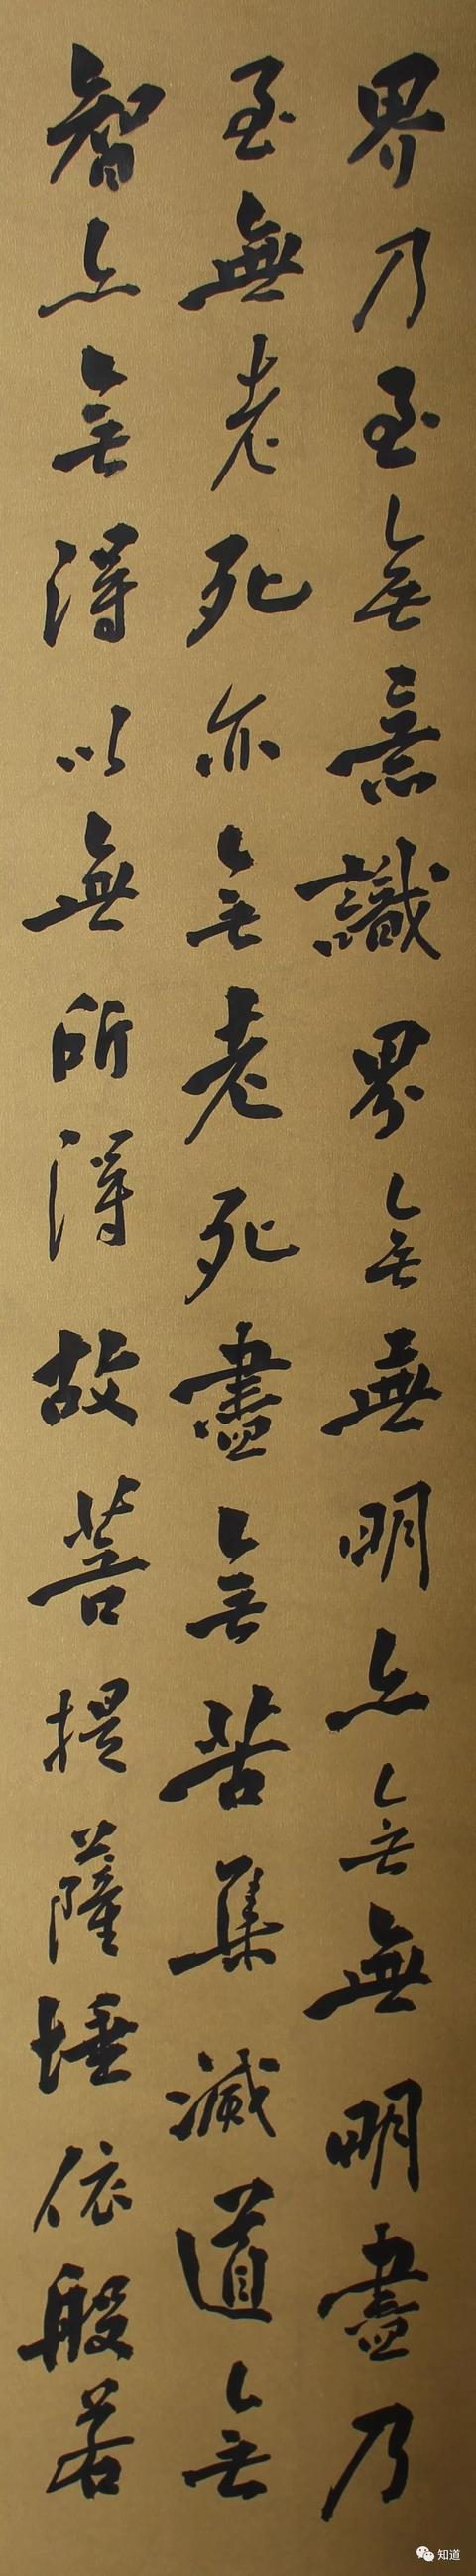 界乃至無意識界無無明亦無無明盡乃
至無老死亦無老死盡無苦集滅道無
智亦無得以無所得故菩提薩埵依般若
知道